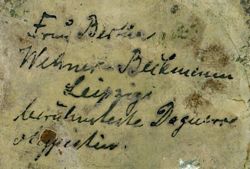 Frau Bertha
Wehner-Beckmann
Leipzigs
berühmteste Daguerre
otypistin.